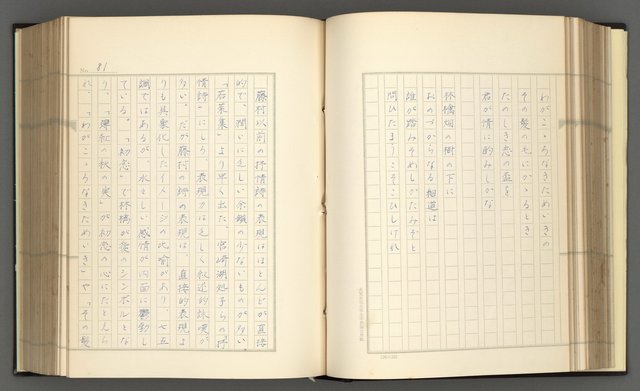 わがこゝろなきためいきの
その髪の毛にかゝるとき
たのしき恋の盃を
君が情に酌みしかな
林檎畑の樹の下に
おのづからなる細道は
誰が踏みそめしかたみぞと
問ひたまふこそこひしけれ
No. 81
藤村以前の抒情詩の表現はほとんどが直接
的で、潤いに乏しい余韻の少ないものが多い。
「若菜集」より早く出た、宮崎湖処子らの「抒
情詩」にしろ、表現力は乏しく叙述的詠嘆が
多い。だが藤村の詩の表現は、直接的表現よ
りも具象化したイメージの比喩があり、七五
調ではあるが、水々しい感情が内面に鬱勃し
ている。「初恋」で林檎が愛のシンボルとな
り、「薄紅の秋の実」が初恋の心にたとえら
れ、「わがこゝろなきためいき」や「その髪